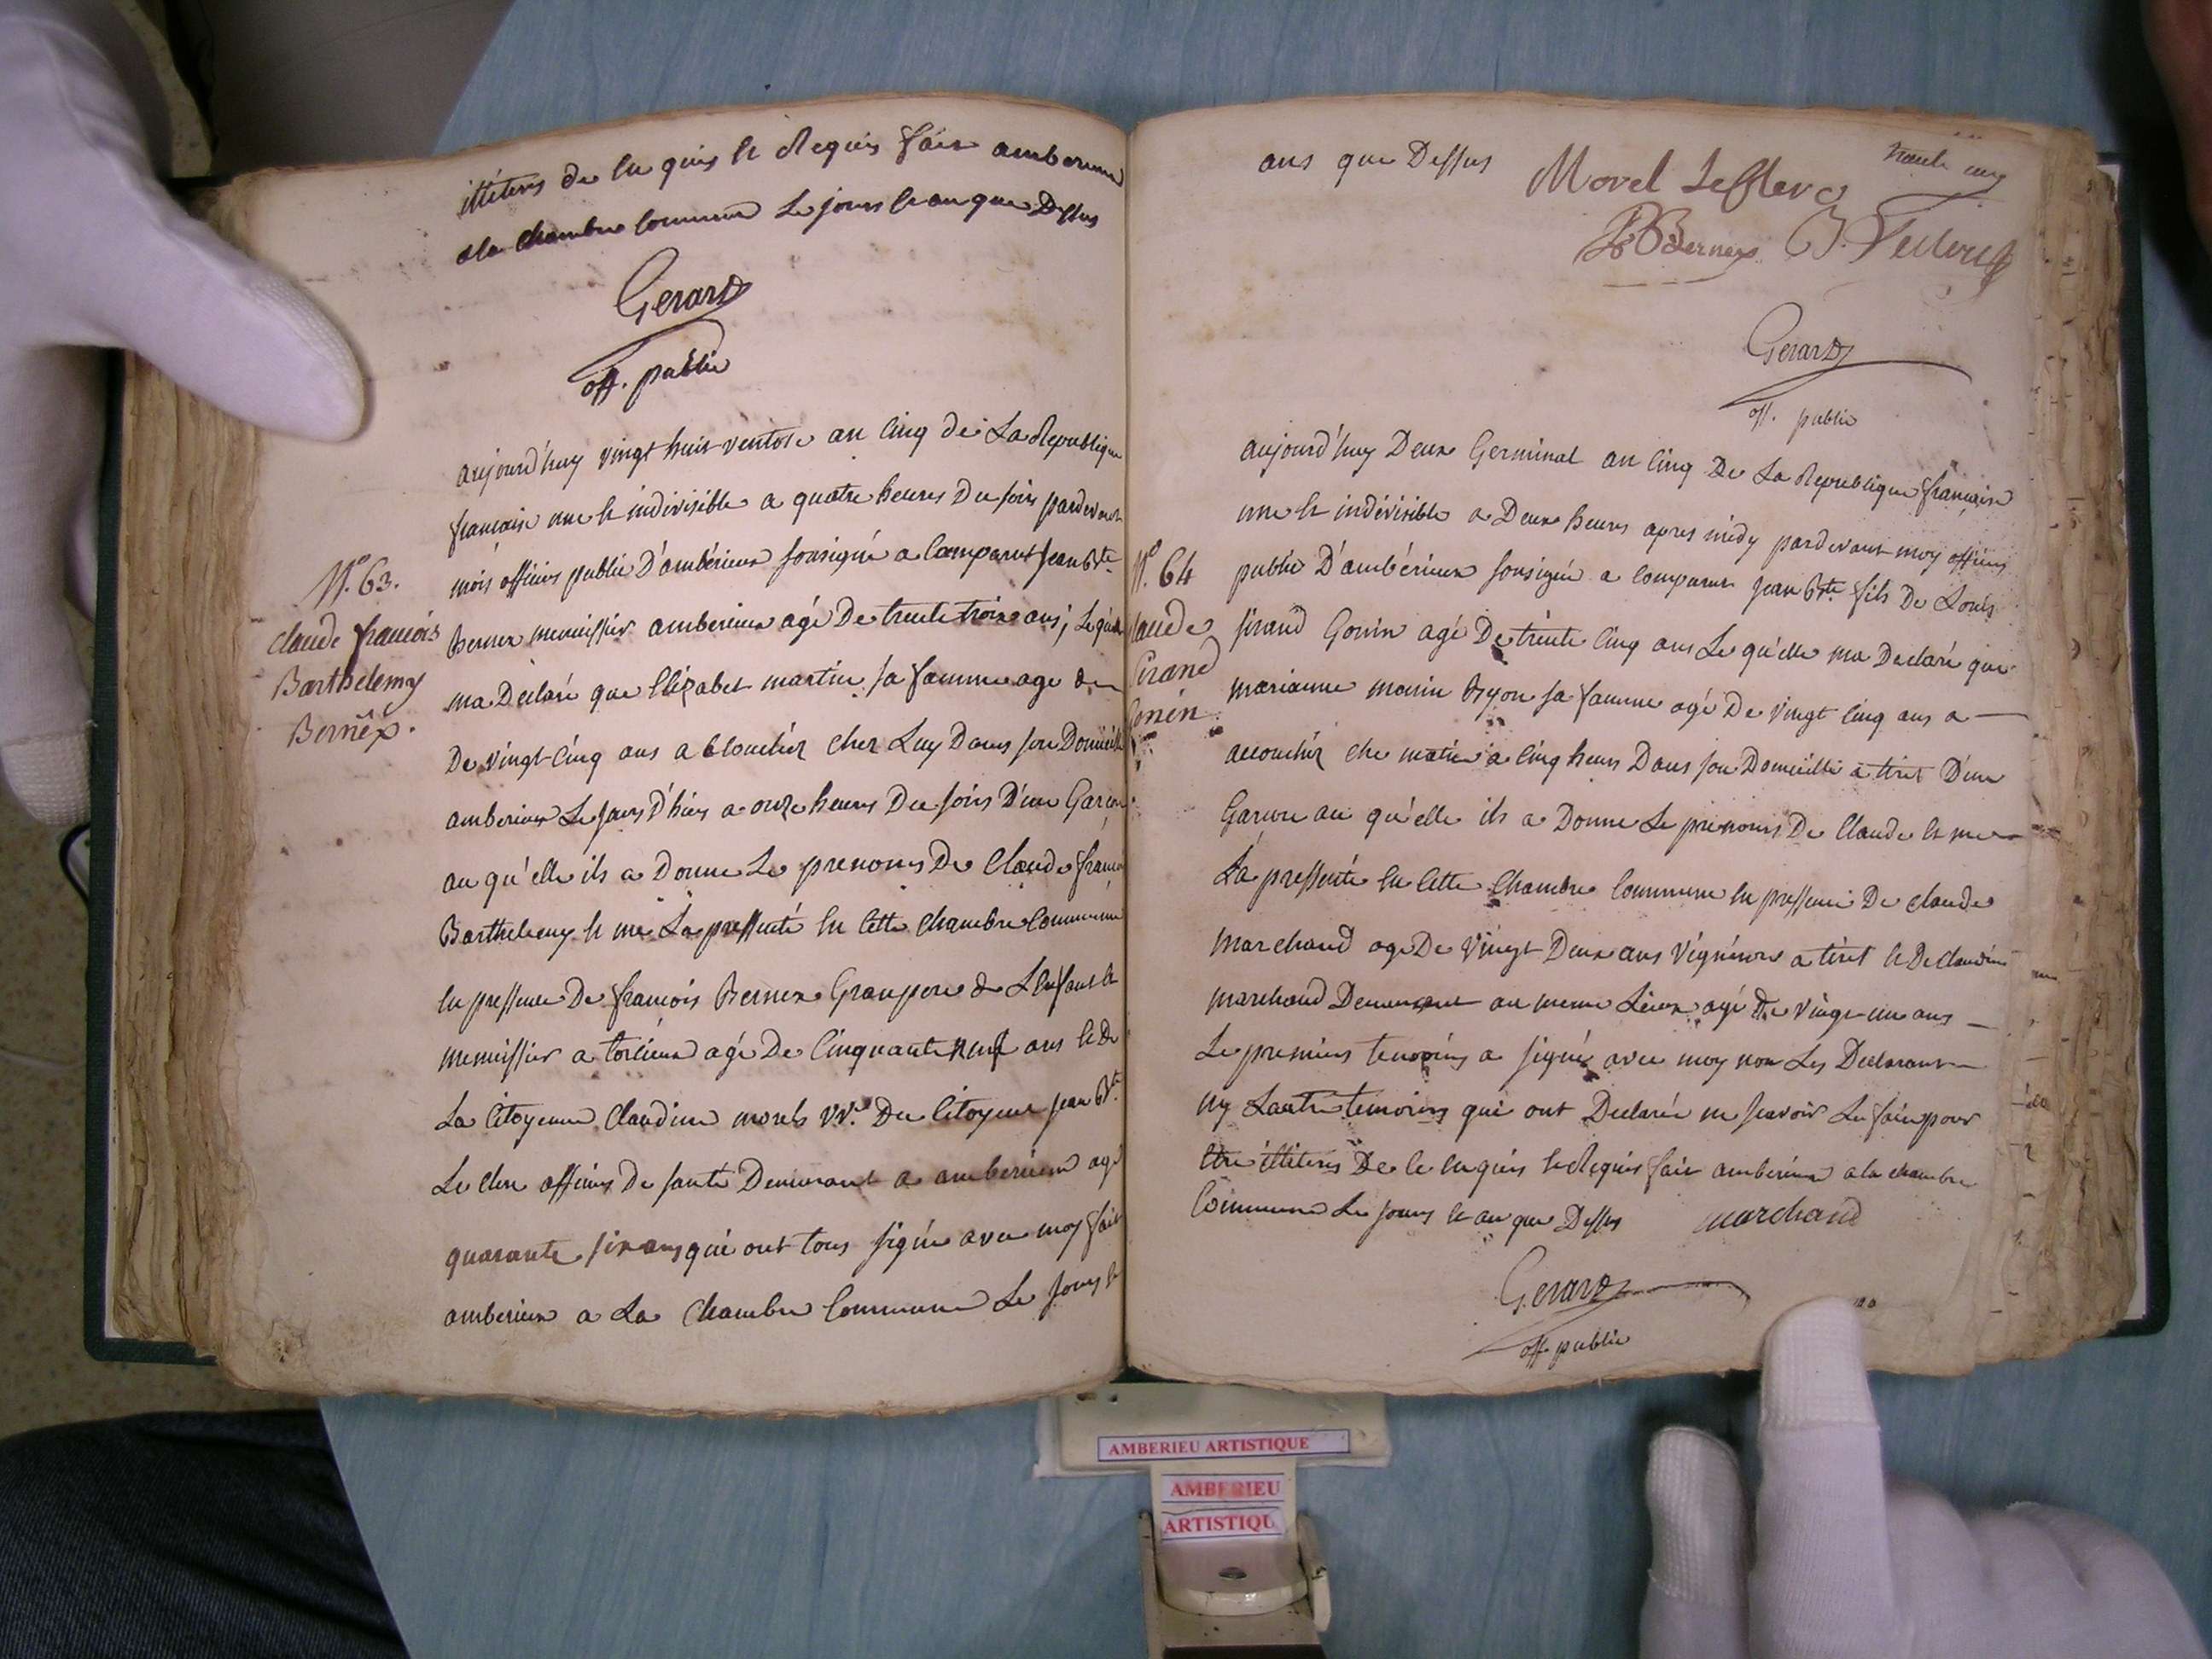 illiterés de ce enquis et Requis fait amberieux
a la Chambre Commune Le jours et an que Dessus
Gerard
off. public
aujourd'huy vingt huit ventose an Cinq de La Republique
francaise une et indivisible a quatre heures Du soirs pardevant
mois officiers public D'ambérieux sousigné a Comparut Jean Bte
N.º 63.
Claude francois
Barthelemy
Bernex.
Bernex menuissier amberieux agé De trente trois ans, Le quelle
ma Declaré que Elizabet martin sa famme age de
De vingt Cinq ans a accouchéz chez Luy Dans son Domicille
amberieux Le jours D'hiers a onze heures Du soirs D'un Garcon
au qu'elle ils a Donne Le prenoms De Claude francois
Barthelemy et me La pressenté en cette Chambre Commune
en pressence De francois Bernex Granpere de L'Enfant et
menuissier a torcieux agé De Cinquante neuf ans et De
La Citoyenne Claudine morels vve Du Citoyens jean Bte
Le clerc officiers De santé Demeurant a amberieux agé
quarante six ans qui ont tous signée avec moy fait
amberieux a La Chambre Commune Le jours et
ans que Dessus
Morel Leclerc
trente cinq
JB Bernex
Gerard
off. public
aujourd'huy Deux Germinal an Cinq De La Republique francaise
une et indivisible a Deux heures apres midy pardevant moy officiers
N.º 64
Claude
Girand
Gonin
public D'ambérieux sousigné a Comparut jean Bte fils De Louis
Girand Gonin agé De trente Cinq ans Le qu'elle ma Declaré que
marianne monin Byon sa famme agé De vingt Cinq ans a
accouchéz che matin a Cinq heurs Dans son Domicille a tiret D'un
Garcon au qu'elle ils a Donne Le prenoms De Claude et me
La pressenté en Cette Chambre Commune en pressence De claude
marchand age De vingt Deux ans Vignérons a tiret et De Claudine
marchand Demeurant au meme Lieux agé De vingt un ans
Le premiers temoins a signé avec moy non Les Declarant
ny Lautre temoins qui ont Declarée ne scavoir Le faire pour
Etre illiterés De ce enquis et Requis fait amberieux a la chambre
Commune Le jours et an que Dessus
marchand
Gerard
off. public
AMBERIEU ARTISTIQUE
AMBERIEU
ARTISTIQU